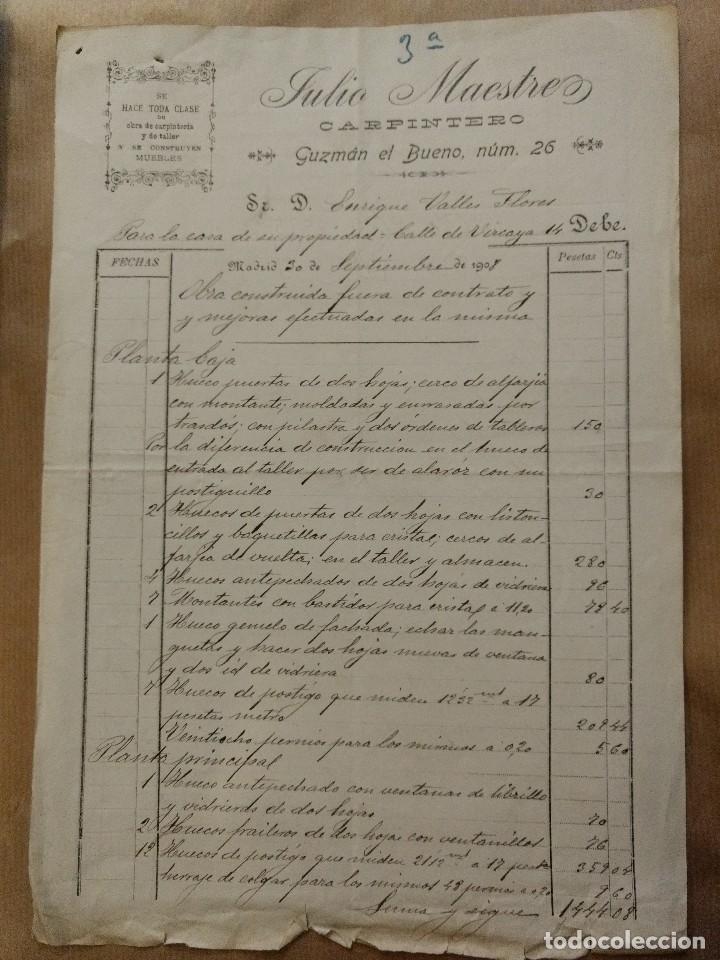 3ª
SE
HACE TODA CLASE
DE
obra de carpintería
y de taller
Y SE CONSTRUYEN
MUEBLES
Julio Maestre
CARPINTERO
Guzmán el Bueno, núm. 26
Sr. D. Enrique Valles Flores
Para la casa de su propiedad = Calle de Vizcaya 14 Debe.
FECHAS Madrid 20 de Septiembre de 1908 Pesetas Cts
Obra construida fuera de contrato y
y mejoras efectuadas en la misma
Planta baja
1 Hueco puertas de dos hojas; cerco de alfarjia
con montante; moldadas y enrasadas por
trasdós; con pilastra y dos órdenes de tableros 150
Por la diferencia de construccion en el hueco de
entrada al taller por ser de alaroz con un
postiguillo 30
2 Huecos de puertas de dos hojas con liston-
cillos y baquetillas para cristal; cercos de al-
farjia de vuelta; en el taller y almacen. 280
4 Huecos antepechados de dos hojas de vidriera 96
7 Montantes con bastidos para cristal a 11,20 78 40
1 Hueco gemelo de fachada; echar las man-
guetas y hacer dos hojas nuevas de ventana
y dos id de vidriera 80
7 Huecos de postigo que miden 12'32 a 17
pesetas metro 209 44
Veintiocho pernios para los mismos a 0,20 5 60
Planta principal
1 Hueco antepechado con ventanas de librillo
y vidrieras de dos hojas 70
2 Huecos fraileros de dos hojas con ventanillos 76
12 Huecos de postigo que miden 21'12 a 17 peseta 359 04
herraje de colgar para los mismos 48 pernios a 0,20 9 60
Suma y sigue 1444 08
todocoleccion